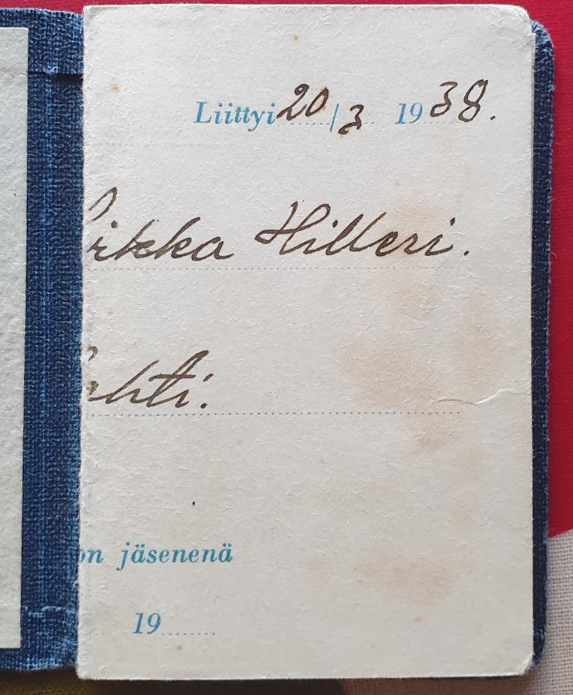 Liittyi 20/3 1938.
Hilleri.
ahti.
on jäsenenä
19